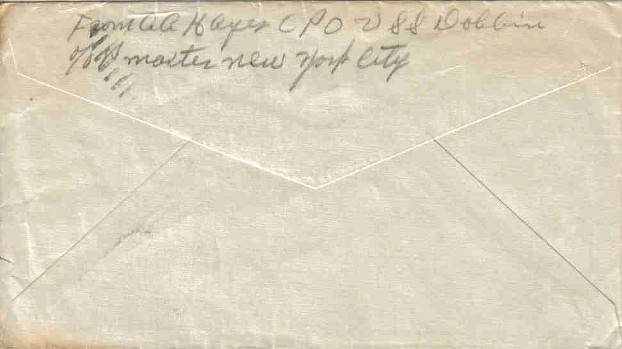 From A A Hayes CPO USS Dobbin
master new York City